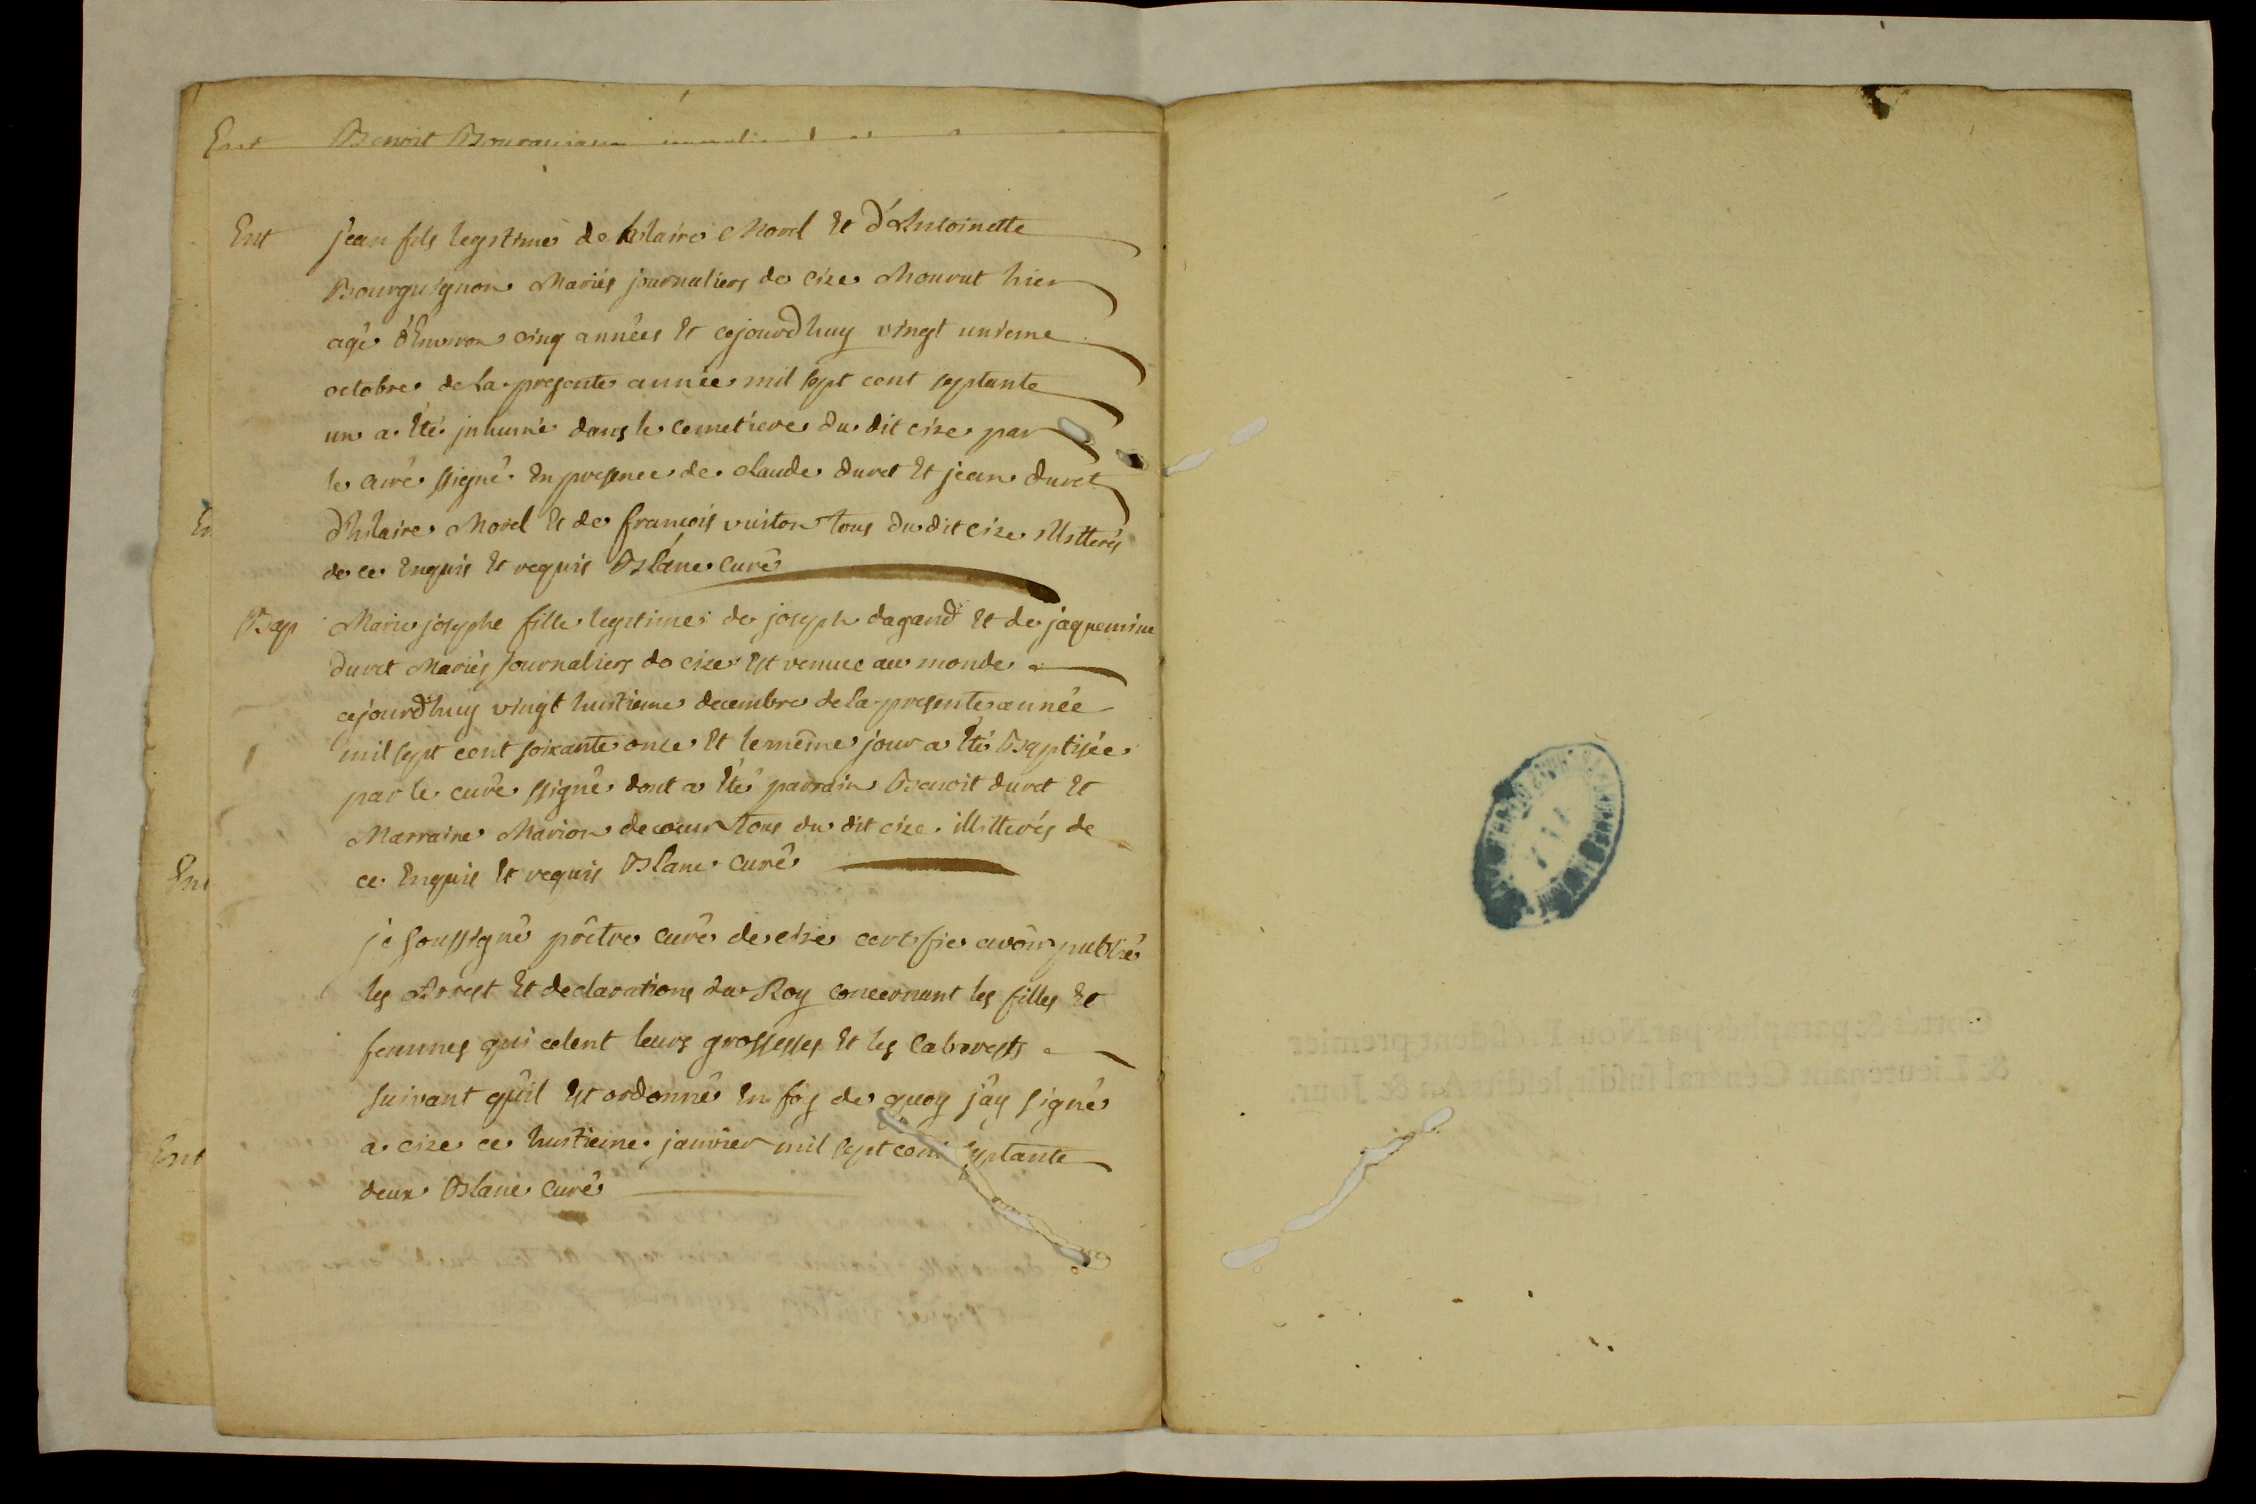 Ent Benoit Bourguignon
Ent jean fils legitime de hilaire Morel Et d'Antoinette
Bourguignon Mariés journaliers de cize Mourut hier
agé d'Environ cinq années Et cejourdhuy vingt unieme
octobre de la presente année mil sept cent septante
un a Eté jnhumé dans le cemetiere du dit cize par
le curé ssigné En presence de claude duret Et jean duret
d'hilaire Morel Et de francois vuiton tous du dit cize illitterés
de ce Enquis Et requis Blanc curé
Bap Marie josephe fille legitime de joseph dagand Et de jaquemine
duret Mariés journaliers de cize Est venue au monde
cejourdhuy vingt huitieme decembre de la presente année
mil sept cent soixante onze Et le même jour a Eté Baptisée
par le curé ssigné dont a Eté parrain Benoit duret Et
Marraine Marion decoeur tous du dit cize illitterés de
ce Enquis Et requis Blanc curé
je soussigné prêtre curé de cize certifie avoir publié
les Arrest Et declarations du Roy concernant les filles Et
femmes qui celent leurs grossesses Et les Cabarests
suivant qu'il Est ordonné En foy de quoy j'ay signé
a cize ce huitieme janvier mil sept cent septante
deux Blanc curé
En
Ent
Ent